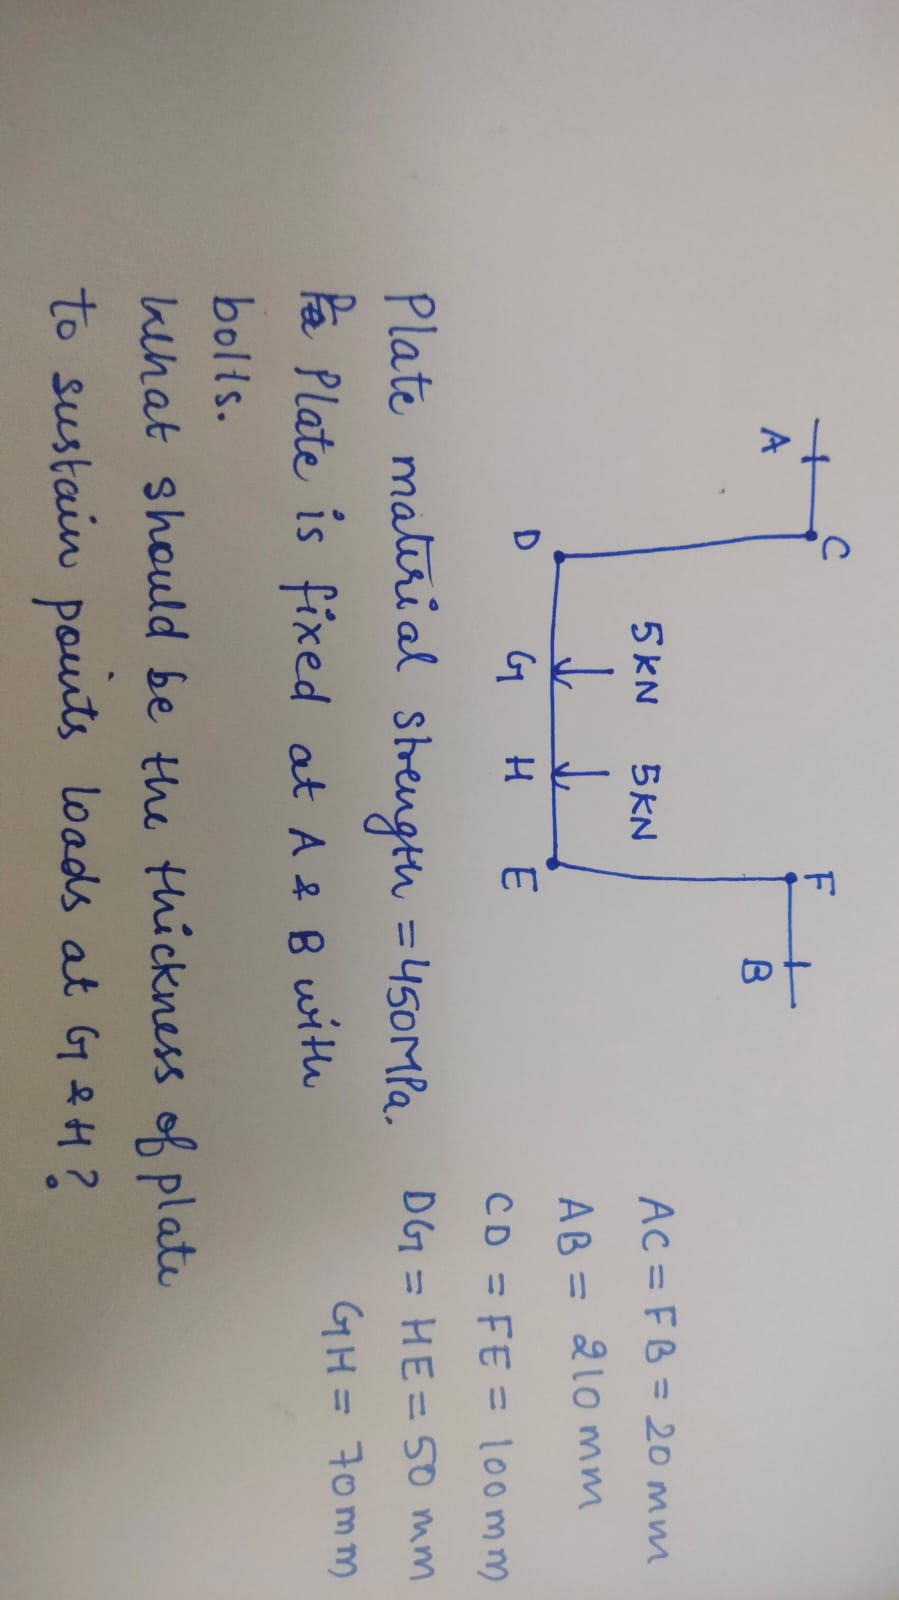 A C F B
5KN 5KN
D G H E
AC = FB = 20 mm
AB = 210 mm
CD = FE = 100 mm
DG = HE = 50 mm
GH = 70 mm
Plate material strength = 450MPa.
Plate is fixed at A & B with
bolts.
What should be the thickness of plate
to sustain points loads at G & H?